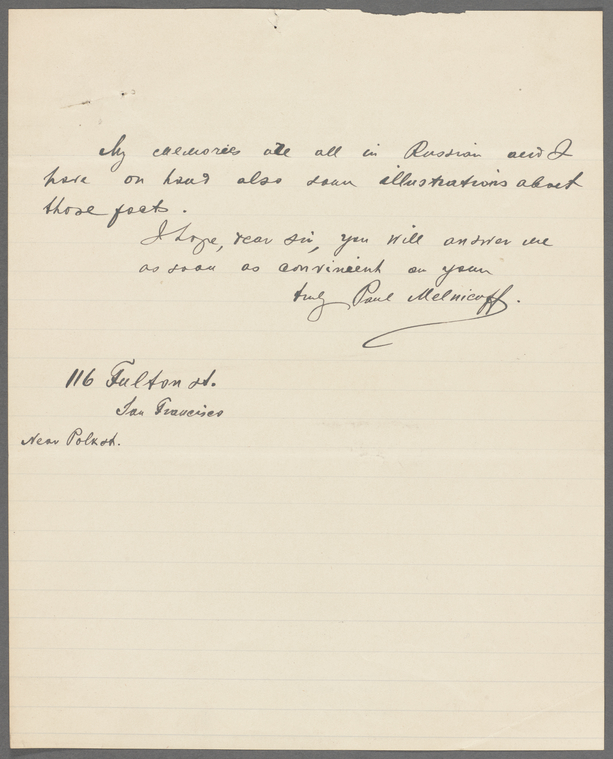 My memories are all in Russian and I
have on hand also soum illustrations about
those facts.
I hope, dear sir, you will answer me
as soon as convinient on your
truly Paul Melnicoff.
116 Fulton st.
San Francisco
Near Polk st.